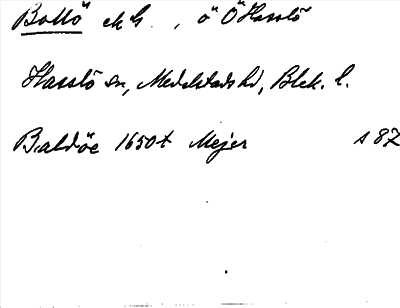 Bollö ek G. , ö Ö Hasslö
Hasslö sn, Medelstads hd, Blek. l.
Baldöe 1650t Mejer s 87